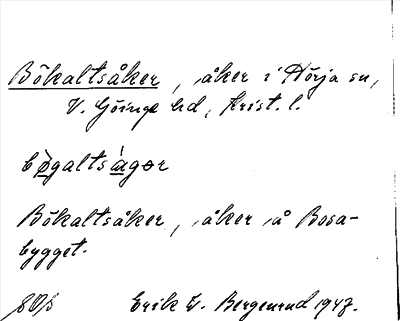 Bökaltsåker, åker i Hörja sn,
V. Göinge hd, Krist. l.
bøgaltsàgər
Bökaltsåker, åker å Bosa-
bygget.
Erik W. Bergenrud 1947.